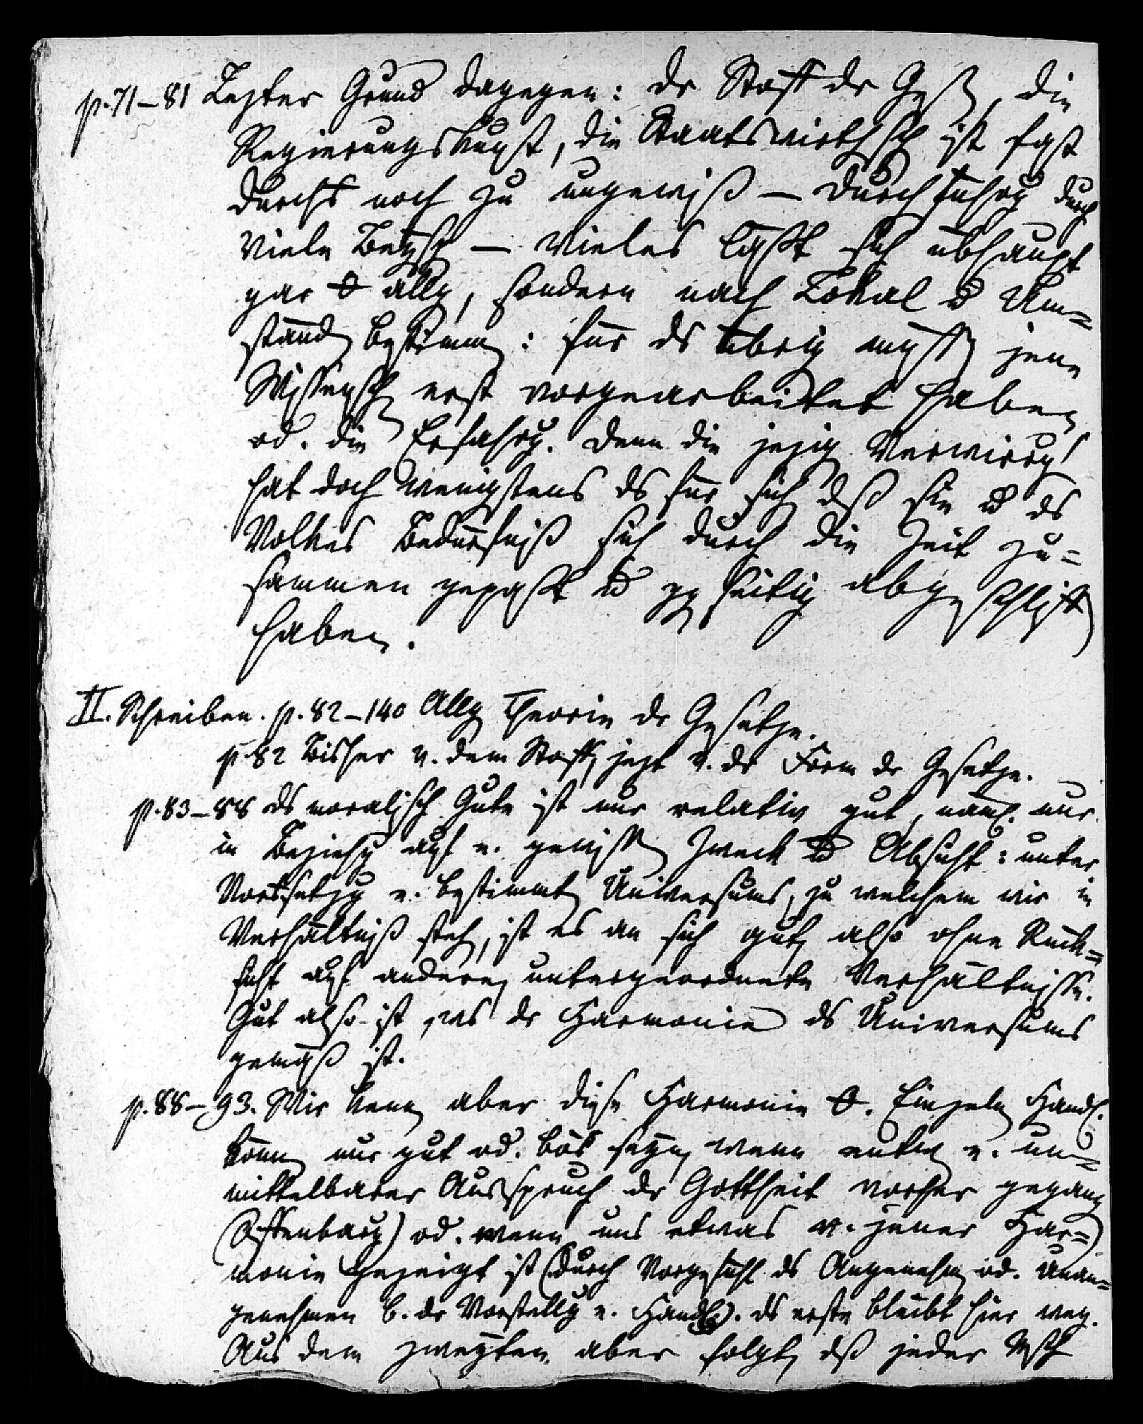 p. 71–81 Lezter Grund dagegen: dr Stoff dr Gesz, die
Regierungskunst, die Staatswirthsch ist fast
durchs noch zu ungewiß — durch
viele — vieles läßt sich übhaupt
gar allg, sondern nach Lokal u Um=
ständ bestimm: für ds übrig müss jene
Wissensch erst vorgearbeitet haben,
od. die Erfahrg. denn die jezig Verwirrg
hat doch wenigstens ds für sich, dß sie u ds
Volkes Bedürfniß sich durch die Zeit zu=
sammen gepaßt u ggseitig abgeschliff
haben.
II. Schreiben. p. 82–140 Allg Theorie dr Gesetze.
p. 82 Bisher v. dem Stoff, jezt v. dr Form dr Gesetze. —
p. 83–88 ds moralisch Gute ist nur relativ gut, näml. nur
in Beziehg auf e. gewiss Zweck u Absicht: unter
Vorssetzg e. bestimmt Universums, zu welchem wir in
Verhältniß steh, ist es an sich gut, also ohne Rük=
sicht auf andere, untergeordnete Verhältnisse.
Gut also ist, was dr Harmonie ds Universums
gemäß ist.
p. 88–93. Wir kenn aber diese Harmonie. Einzeln Handl.
könn nur gut od. bös seyn, wenn entw e. un=
mittelbarer Ausspruch dr Gottheit vorher gegang
(Offenbarg) od. wenn uns etwas v. jener Har=
monie gezeigt ist (durch Vorgefühl ds Angenehm od. Unan=
genehmen b. dr Vorstellg e. Handlg). ds erste bleibt hier weg.
Aus dem zweyten aber folgt, dß jeder Msch